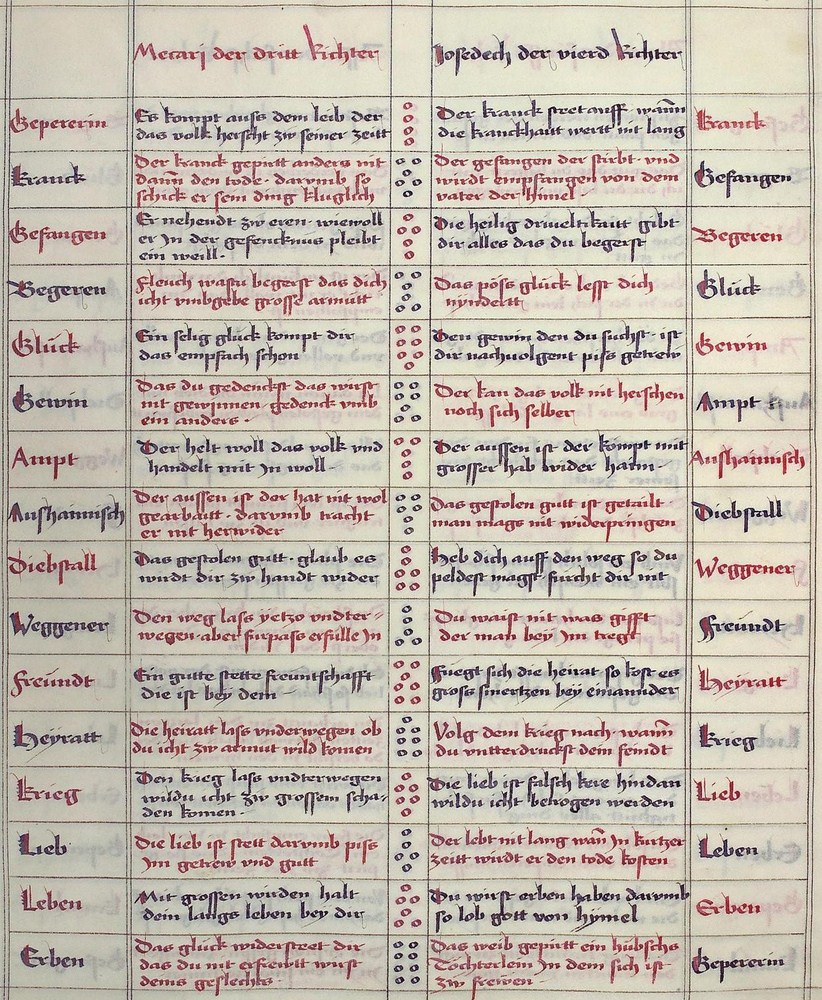 Mecarj der dritt Richter
Josedech der vierd Richter
Gepererin
Es kompt auss dem leib der
das volk herscht zw seiner zeitt
Der kranck stet auff wann
die kranckhait wert nit lang
Kranck
Kranck
Der kranck gepirtt anders nit
dann den tode darvmb so
schick er sein ding kluglich
Der gefangen der stirbt vnd
wirdt empfangen von dem
vater der himel
Gefangen
Gefangen
Er nehendt zw eren wiewoll
er Jn der gefencknus pleibt
ein weill
Die heilig driueltikait gibt
dir alles das du begerst
Begeren
Begeren
Fleuch wastu begerst das dich
icht vmbgebe grosse armutt
Das pöss glück lesst dich
nyndertt
Glück
Glück
Ein selig glück kompt dir
das empfach schon
Den gewin den du suchst ist
dir nachuolgent piss getrew
Gewin
Gewin
Das du gedenckst das wirst
nit gewynnen gedenck vmb
ein anders
Der kan das volk nit herschen
noch sich selber
Ampt
Ampt
Der helt woll das volk vnd
handelt mit Jn woll
Der aussen ist der kompt mit
grosser hab wider haim
Aushaimisch
Aushaimisch
Der aussen ist der hat nit wol
gearbaitt darvmb tracht
er nit herwider
Das gestolen gutt ist getailt
man mags nit widerpringen
Diebstall
Diebstall
Das gestolen gutt glaub es
wirdt dir zw handt wider
Heb dich auff den weg so du
peldest magst fürcht dir nit
Weggener
Weggener
Den weg lass yetzo vndter-
wegen aber fürpass erfülle Jn
Du waist nit was gifft
der man bey Jm tregt
Freündt
Freündt
Ein gutte stette freuntschafft
die ist bey dem
Fuegt sich die heirat so kost es
gross smertzen bey einannder
Heyratt
Heyratt
Die heiratt lass vnderwegen ob
du icht zw armut wild komen
Volg dem krieg nach wann
du vntterdruckst dein feindt
Krieg
Krieg
Den krieg lass vndterwegen
wildu icht zw grossem scha-
den komen
Die lieb ist falsch kere hindan
wildu icht betrogen werden
Lieb
Lieb
Die lieb ist stett darvmb piss
Jm getrew vnd gutt
Der lebt nit lang wan Jn kurtzer
zeitt wirdt er den tode kosten
Leben
Leben
Mit grossen wirden halt
dein langs leben bey dir
Du wirst erben haben darvmb
so lob gott von hymel
Erben
Erben
Das glück widersteet dir
das du nit erfrewtt wirst
deins geslechts
Das weib gepirtt ein hübschs
Töchterlein Jn dem sich ist
zw frewen
Gepererin